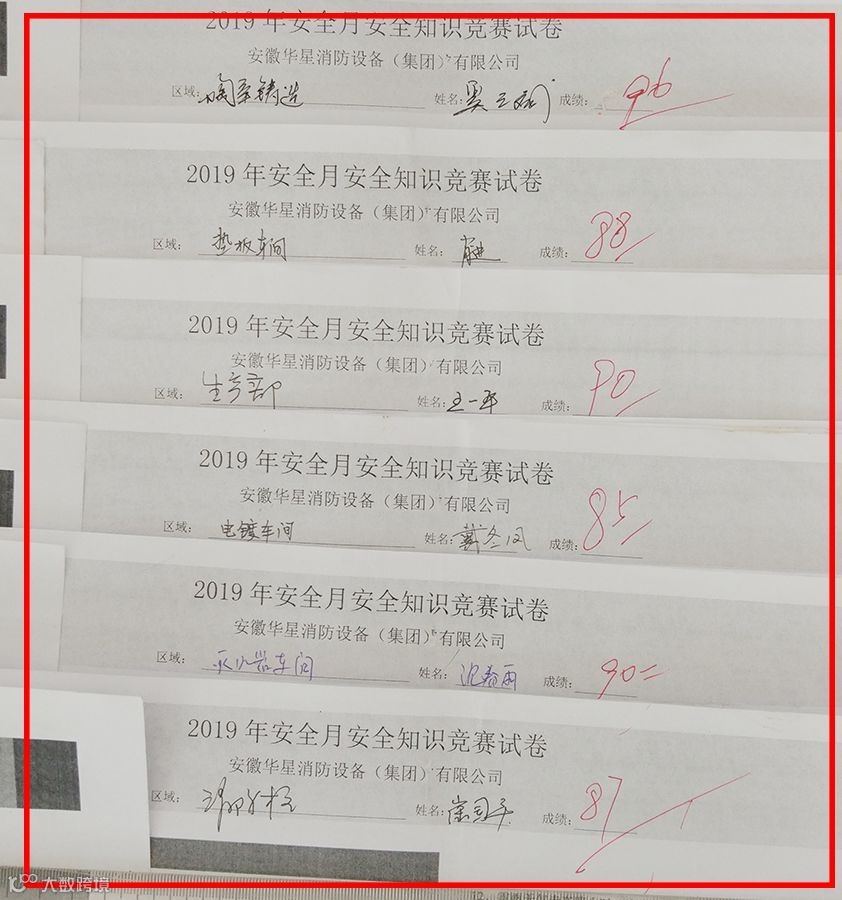 2019年安全月安全知识竞赛试卷
安徽华星消防设备（集团）有限公司
区域: 陶系铸造 姓名: 吴 成绩: 96
2019年安全月安全知识竞赛试卷
安徽华星消防设备（集团）有限公司
区域: 垫板车间 姓名: 成绩: 88
2019年安全月安全知识竞赛试卷
安徽华星消防设备（集团）有限公司
区域: 生产部 姓名: 王一平 成绩: 90
2019年安全月安全知识竞赛试卷
安徽华星消防设备（集团）有限公司
区域: 电镀车间 姓名: 戴冬风 成绩: 85
2019年安全月安全知识竞赛试卷
安徽华星消防设备（集团）有限公司
区域: 灭火器车间 姓名: 沈春雨 成绩: 90
2019年安全月安全知识竞赛试卷
安徽华星消防设备（集团）有限公司
区域: 姓名: 成绩: 87
大数跨境